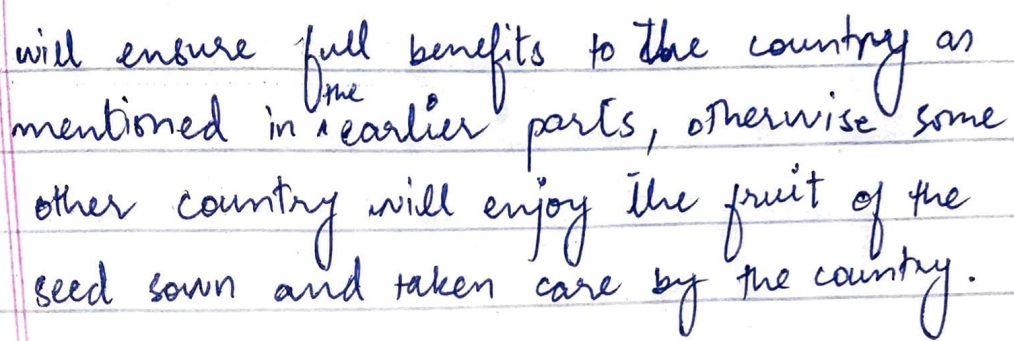 will ensure full benefits to the country as
mentioned in the earlier parts, otherwise some
other country will enjoy the fruit of the
seed sown and taken care by the country.